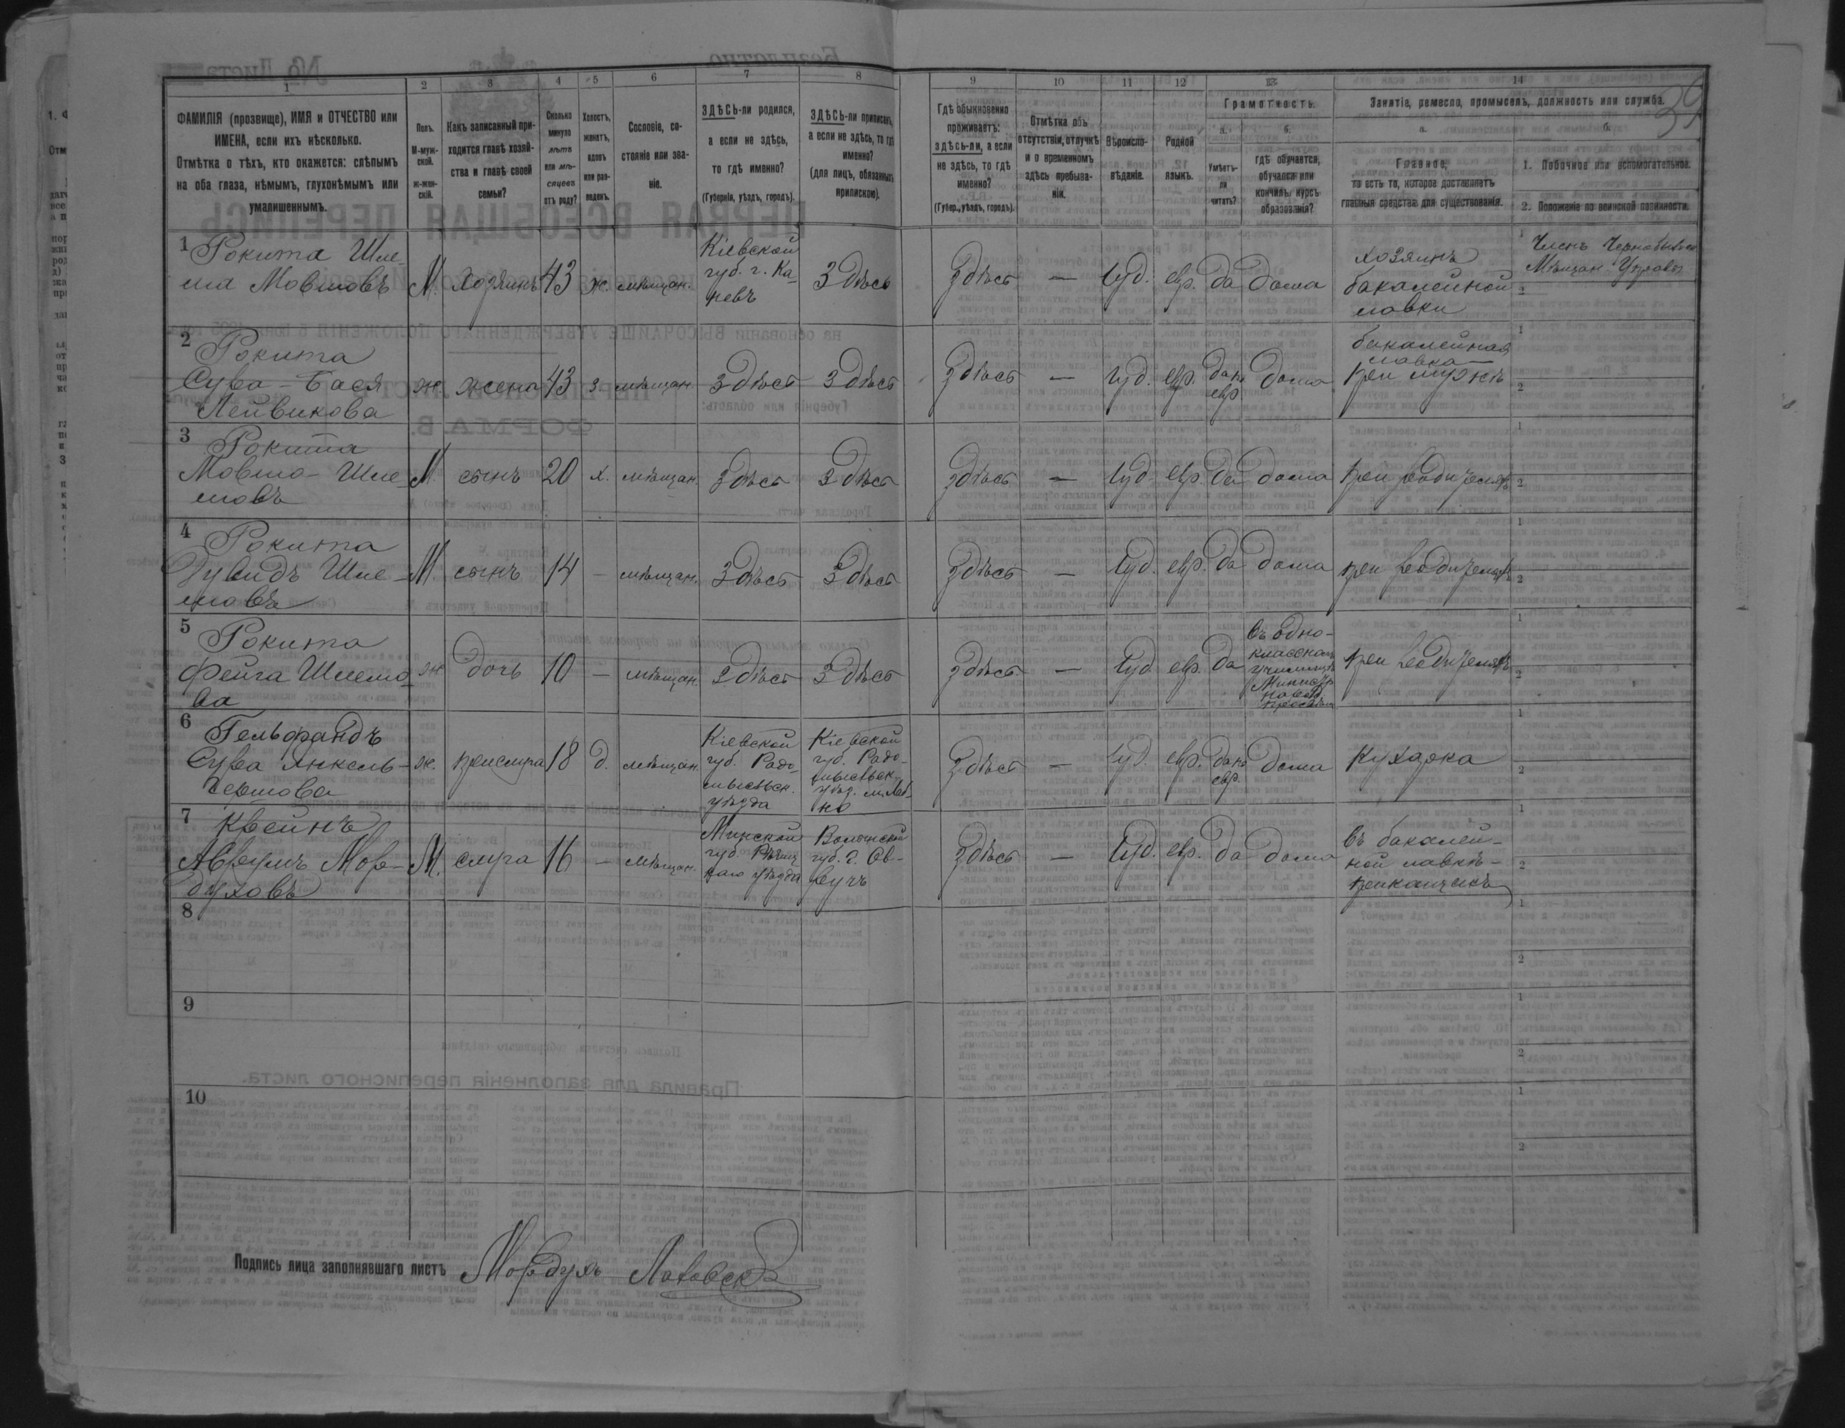 39
1 2 3 4 5 6 7 8 9 10 11 12 13 14
ФАМИЛІЯ (прозвище), ИМЯ и ОТЧЕСТВО или
ИМЕНА, если ихъ нѣсколько.
Отмѣтка о тѣхъ, кто окажется: слѣпымъ
на оба глаза, нѣмымъ, глухонѣмымъ или
умалишеннымъ.
Полъ.
М-муж-
ской.
ж-жен-
скій.
Какъ записанный при-
ходится главѣ хозяй-
ства и главѣ своей
семьи?
Сколько
минуло
лѣтъ
или мѣ-
сяцевъ
отъ роду?
Холостъ,
женатъ,
вдовъ
или раз-
веденъ.
Сословіе, со-
стояніе или зва-
ніе.
ЗДѢСЬ-ли родился,
а если не здѣсь,
то гдѣ именно?
(Губернія, уѣздъ, городъ).
ЗДѢСЬ-ли приписанъ,
а если не здѣсь, то гдѣ
именно?
(для лицъ, обязанныхъ
припискою).
Гдѣ обыкновенно
проживаетъ:
здѣсь-ли, а если
не здѣсь, то гдѣ
именно?
(Губер., уѣздъ, городъ).
Отмѣтка объ
отсутствіи, отлучкѣ
и о временномъ
здѣсь пребыва-
ніи.
Вѣроиспо-
вѣданіе.
Родной
языкъ.
Грамотность.
а. б.
Умѣетъ-
ли
читать?
гдѣ обучается,
обучался или
кончилъ курсъ
образованія?
Занятіе, ремесло, промыселъ, должность или служба.
а. б.
Главное,
то есть то, которое доставляетъ
главныя средства для существованія.
1. Побочное или вспомогательное.
2. Положеніе по воинской повинности.
1 Рокита Шле-
ма Мовшовъ М. хозяинъ 43 ж. мѣщан. Кіевской губ. г. Ка-невъ Здѣсь здѣсь — Іуд. евр. да дома хозяинъ бакалейной лавки Членъ Мѣщан. Управы
2 Рокита
Сура-Бася
Лейвикова ж. жена 43 з. мѣщан. здѣсь здѣсь здѣсь — іуд. евр. да по евр. дома бакалейная лавка при мужѣ
3 Рокита
Мовша Шле-
мовъ М. сынъ 20 х. мѣщан. здѣсь здѣсь здѣсь — Іуд. евр. да дома при родителяхъ
4 Рокита
Дувидъ Шле-
мовъ М. сынъ 14 — мѣщан. здѣсь здѣсь здѣсь — Іуд. евр. да дома при родителяхъ
5 Рокита
Фейга Шлемо-
ва ж дочь 10 — мѣщан. здѣсь здѣсь здѣсь — Іуд. евр. да въ одно-классномъ училищѣ при родителяхъ
6 Гельфандъ
Сура Янкель-
ж. прислуга 18 д. мѣщан. Кіевской губ. Радо-мысльск. уѣзда Кіевской губ. Радо-мысльск. уѣз. здѣсь — Іуд. евр. да по евр. дома кухарка
7 Квейнъ
Аврумъ Мор-
духовъ М. слуга 16 — мѣщан. Минской губ. Рѣчиц-каго уѣзда Волынской губ. г. Ов-ручъ здѣсь — Іуд. евр. да дома въ бакалей-ной лавкѣ- прикащикъ
8
9
10
Подпись лица заполнявшаго листъ Мордухъ